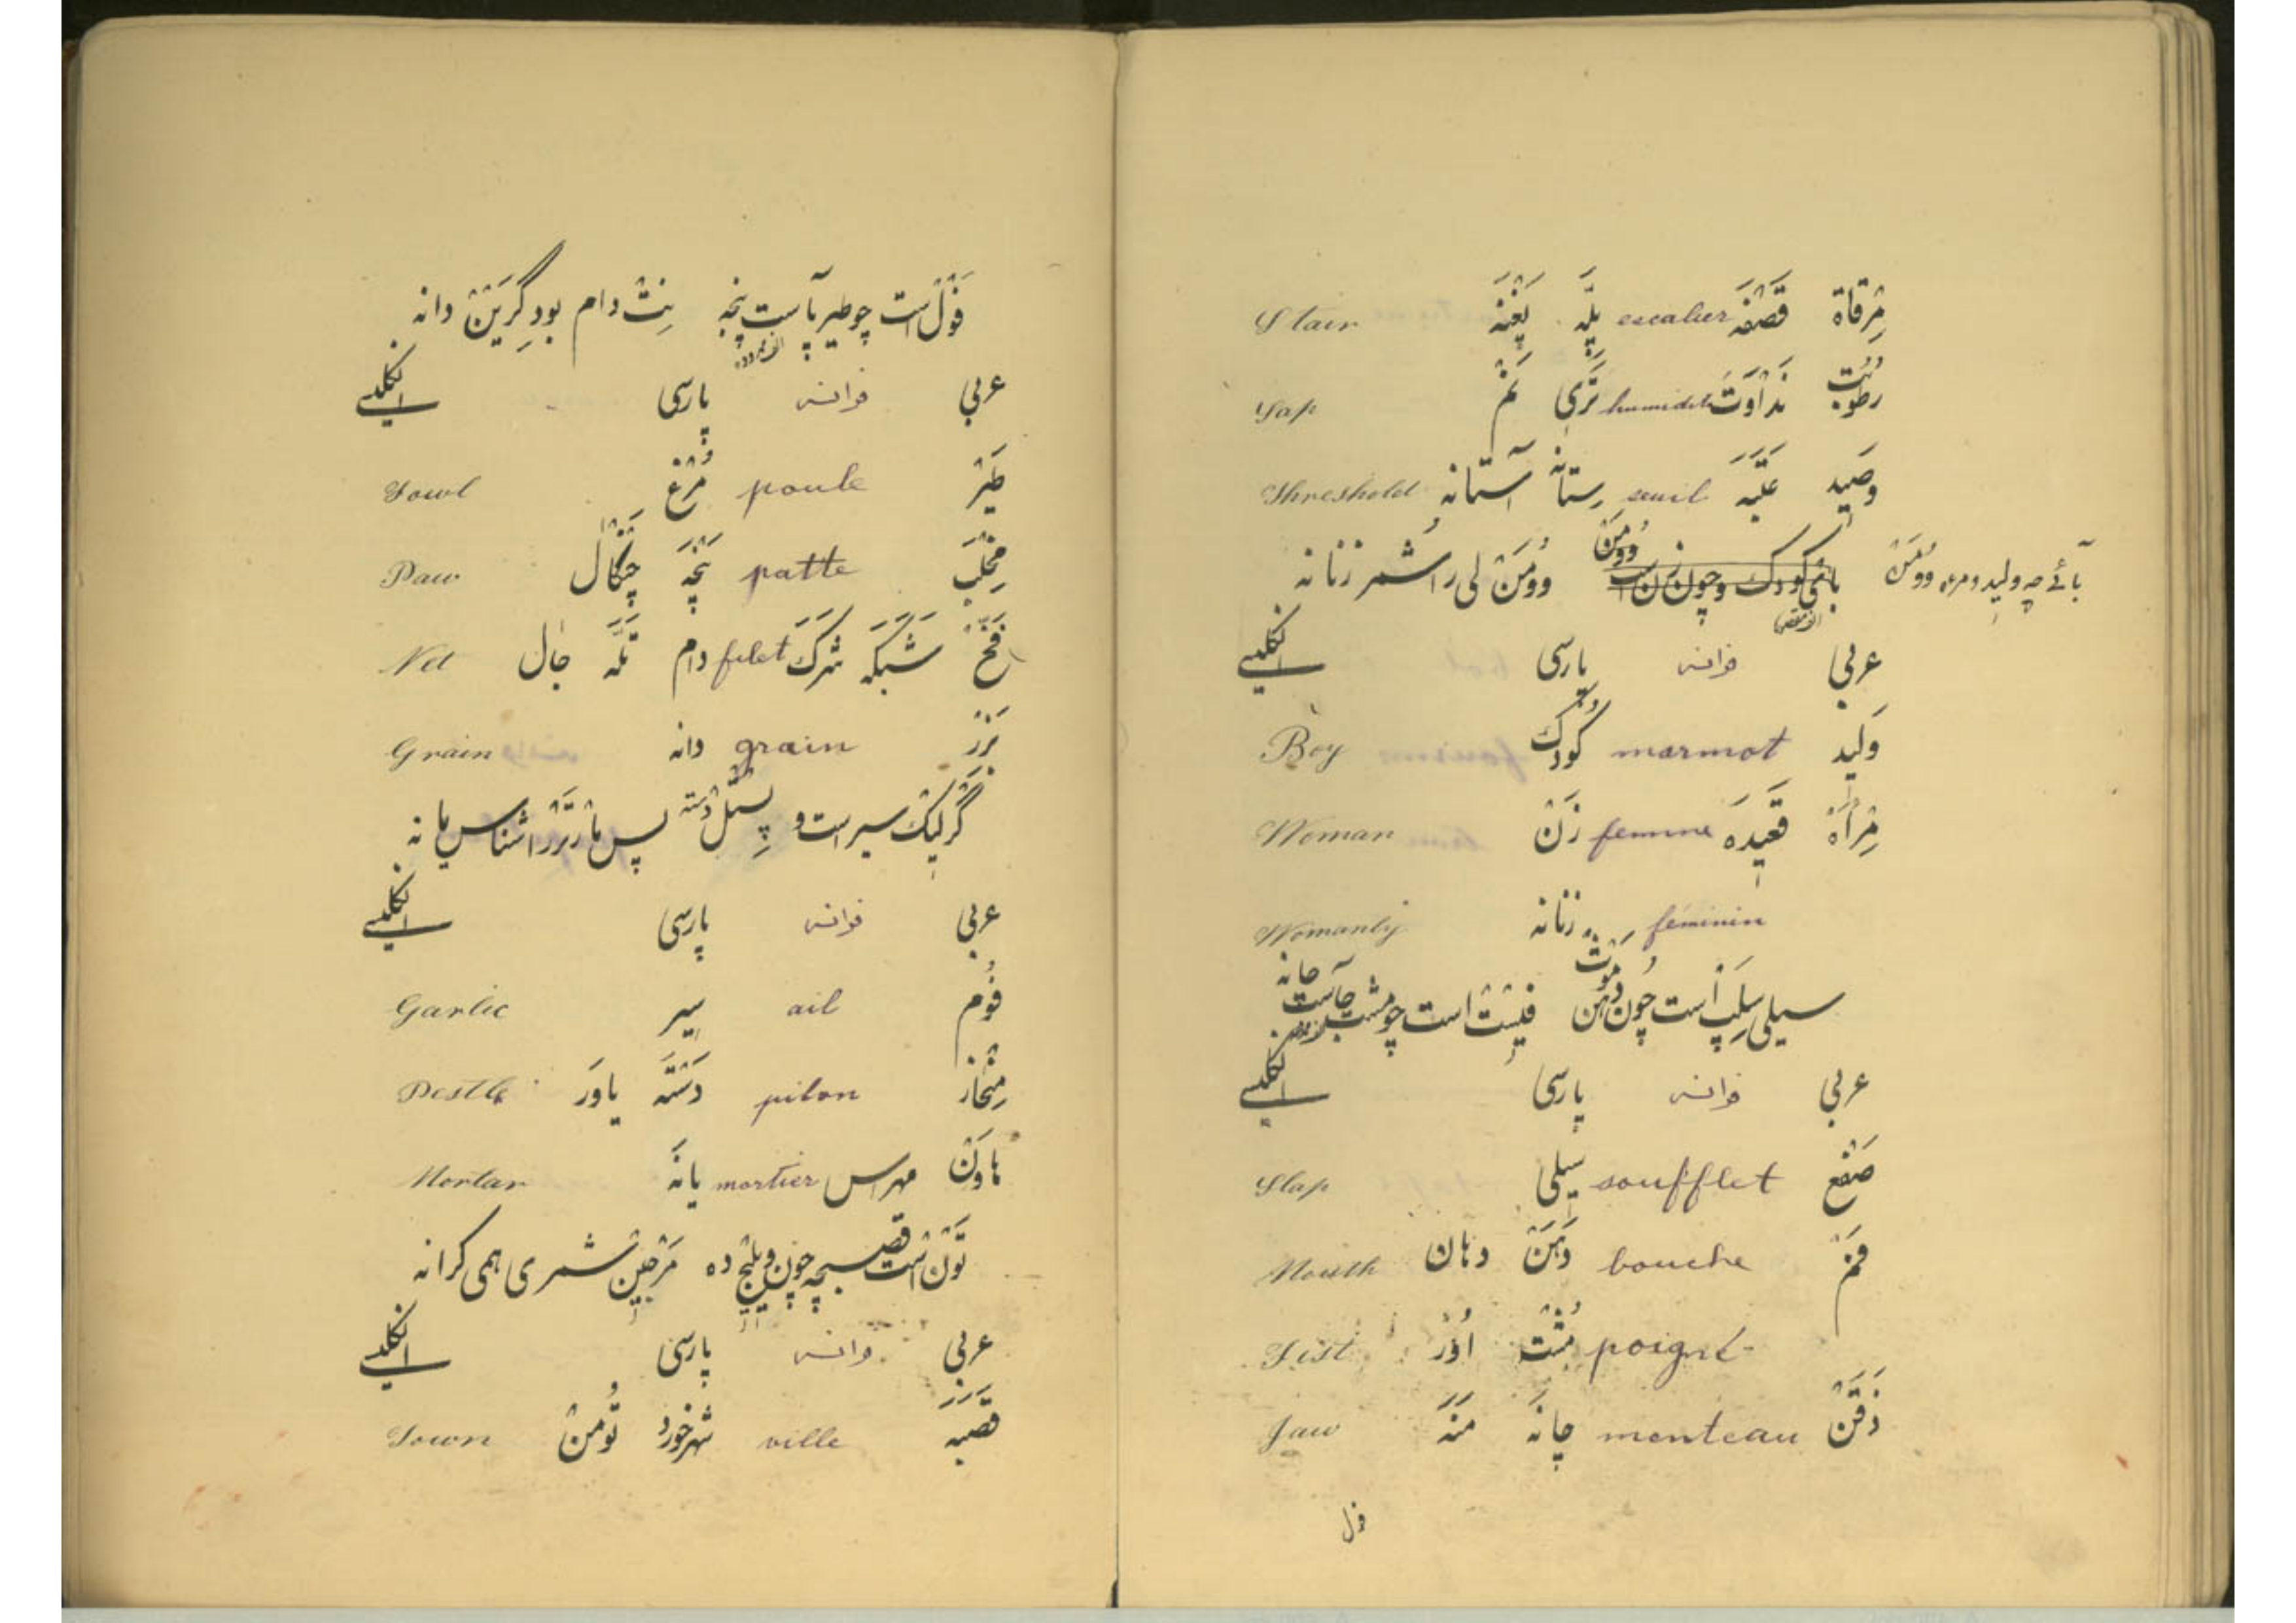 مِرْقاة قَصْفَه escalier پِلّه پَغْنَه Stair
رُطُوبَت نَدَاوَت humidité تَرّی نَمْ Sap
وَصِید عَتَبَه seuil ستانه آستانه Threshold
بآئے چه ولید ومرءه وُومَنْ وُومَنْ لی را شمر زنانه
عربی فرانسه پارسی انگلیسے
وَلِید marmot کودک Boy
مِرْأَة قَعِیدَه femme زَنْ Woman
féminin زنانه Womanly
سیلی سِلَپْ است چون دهن مَوُثْ فیِسْتْ است چو مشت جآست چانه
عربی فرانسه پارسی انگلیسے
صَفْع soufflet سِیلی Slap
فَمْ bouche دَهَنْ دهان Mouth
poigné مُشْت Fist
ذَقَنْ menteau چانَه مَنَه Jaw
فول
فَوْل است چو طیر پآست پنجه نِتْ دام بود گِرَیْنْ دانه
عربی فرانسه پارسی انگلیسے
طَیْر poule مُرْغ Fowl
مِخْلَب patte پَنْجَه چَنْگال Paw
فَخّ شَبَکَه شَرَک filet دام تَلَه جال Net
بَزْر grain دانه Grain
گَرْلِیک سیر است و پِسْتَلْ دسته پس مارْتَرْ را شناس یانه
عربی فرانسه پارسی انگلیسے
فُوم ail سیر Garlic
مِنْحاز pilon دَسْتَه یاوَر Pestle
هاوَنْ مهراس mortier یانَه Mortar
تَوْنْ است قصبچه چون ویلِیْج ده مَرْجِینْ شمری همی کرانه
عربی فرانسه پارسی انگلیسے
قَصَبَه ville شهر خورد تُومَنْ Town